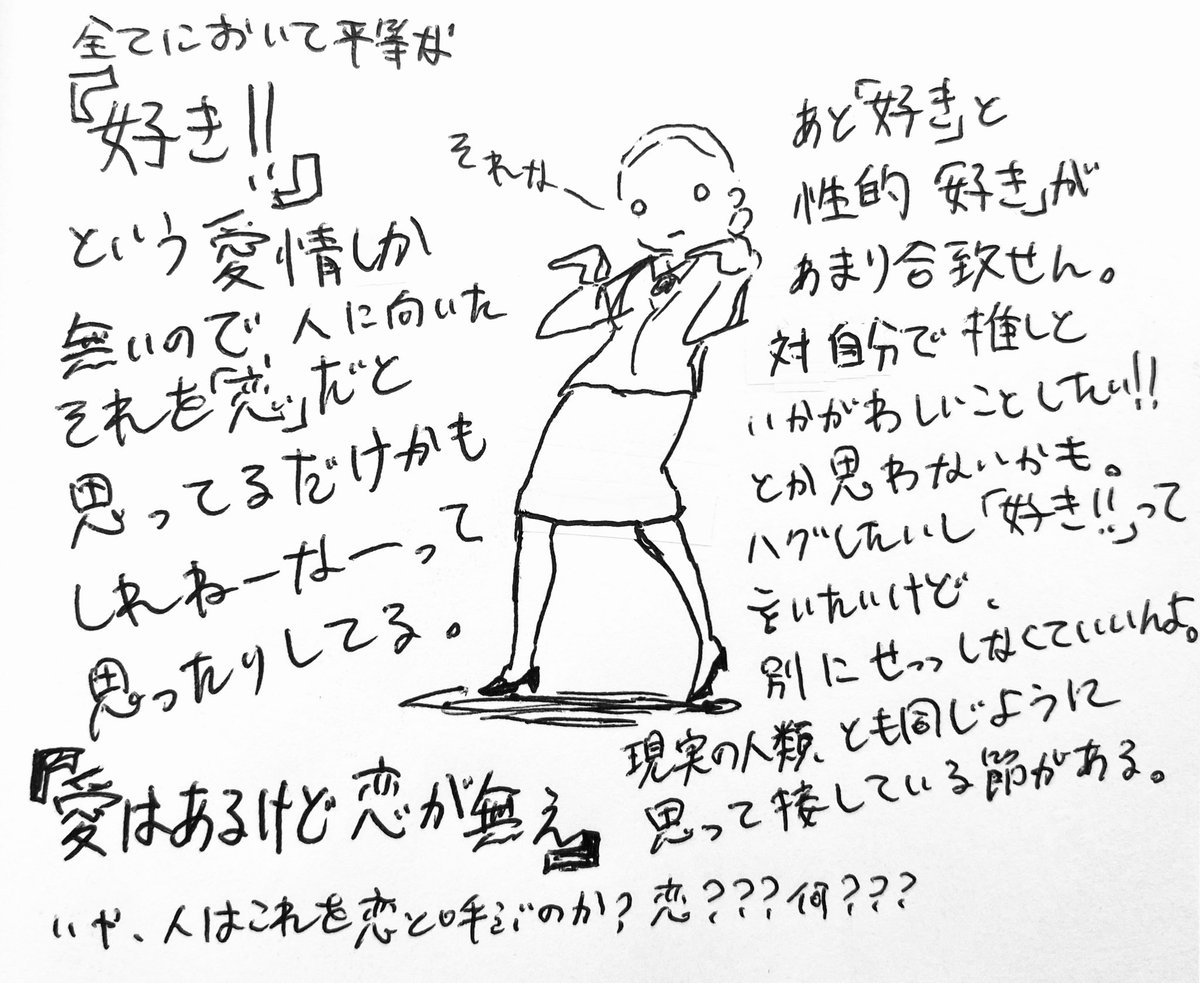 全てにおいて平等な
『好き!!』
という愛情しか
無いので人に向いた
それを「恋」だと
思ってるだけかも
しれねーなーって
思ったりしてる。
『愛はあるけど恋が無え』
それな
あと「好き」と
性的「好き」が
あまり合致せん。
対自分で推しと
いかがわしいことしたい!!
とか思わないかも。
ハグしたいし「好き!!」って
言いたいけど、
別にせっっしなくていいんよ。
現実の人類、とも同じように
思って接している節がある。
いや、人はこれを恋と呼ぶのか?恋???何???